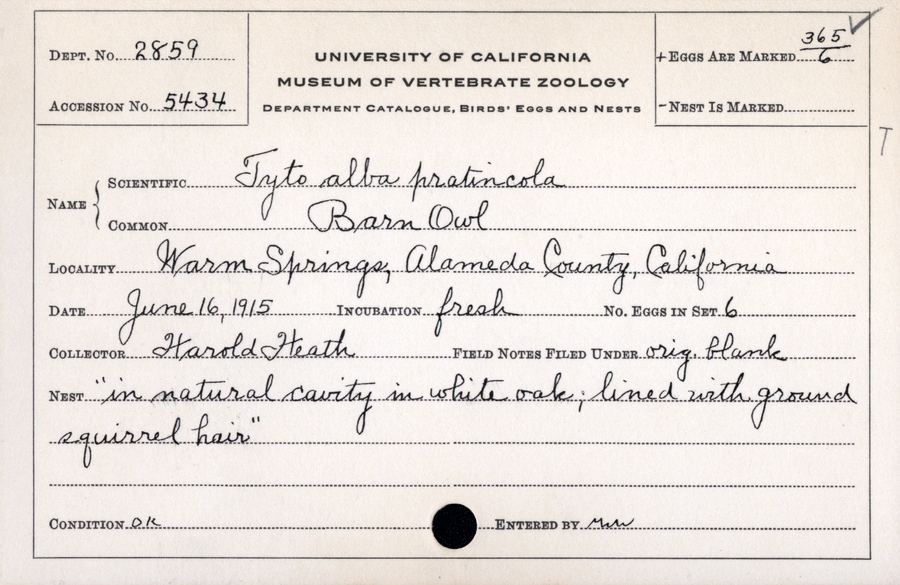 DEPT. No. 2859
ACCESSION No. 5434
UNIVERSITY OF CALIFORNIA
MUSEUM OF VERTEBRATE ZOOLOGY
DEPARTMENT CATALOGUE, BIRDS' EGGS AND NESTS
+EGGS ARE MARKED 365/6 ✓
-NEST IS MARKED
T
NAME
SCIENTIFIC Tyto alba pratincola
COMMON Barn Owl
LOCALITY Warm Springs, Alameda County, California
DATE June 16, 1915 INCUBATION fresh No. EGGS IN SET 6
COLLECTOR Harold Heath FIELD NOTES FILED UNDER orig. blank
NEST "in natural cavity in white oak; lined with ground
squirrel hair"
CONDITION OK ENTERED BY